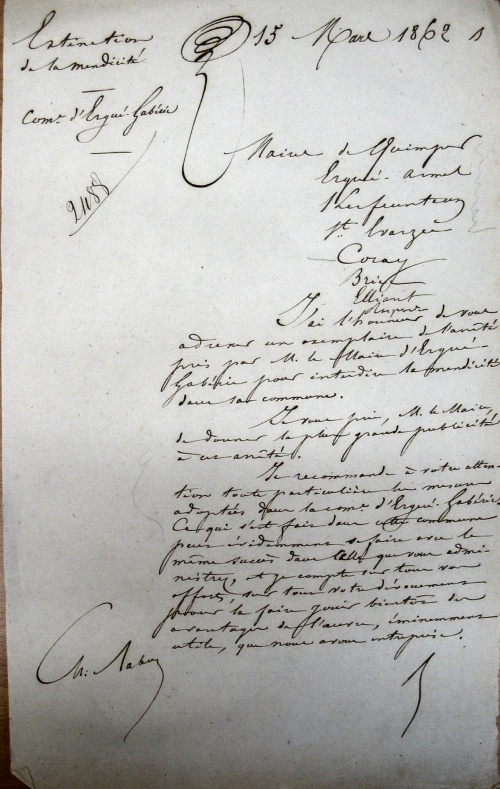 Extinction
de la mendicité
15 Mars 1862
Com.ne d'Ergué-Gabéric
2488
Maires de Quimper
Ergué-Armel
Kerfeunteun
St Evarzec
Coray
Briec
Elliant
J'ai l'honneur de vous
adresser un exemplaire de l'arrêté
pris par M. le Maire d'Ergué-
Gabéric pour interdire la mendicité
dans sa commune.
Je vous prie, M. le Maire,
de donner la plus grande publicité
à cet arrêté.
Je recommande à votre atten-
tion toute particulière les mesures
adoptées dans la com.ne d'Ergué-Gabéric.
Ce qui s'est fait dans cette commune
peut évidemment se faire avec le
même succès dans celle que vous admi-
nistrez, et je compte sur tous vos
efforts, sur tout votre dévouement
pour la faire jouir bientôt des
avantages de l'œuvre, éminemment
utile, que nous avons entreprise.